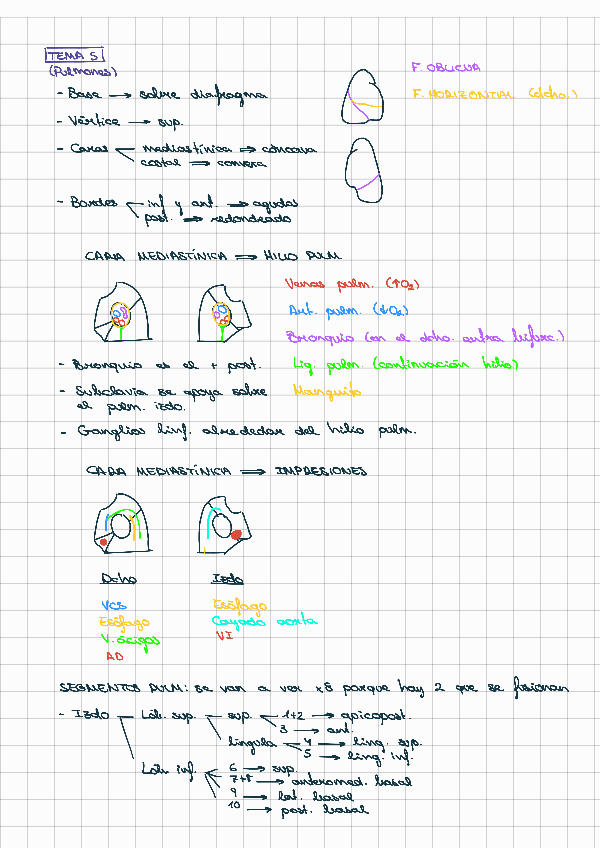 TEMA 5
(Pulmones)
- Base → sobre diafragma
- Vértice → sup.
- Caras mediastínica ⇒ cóncava
costal ⇒ convexa
- Bordes inf y ant. → agudos
post. → redondeado
F. OBLICUA
F. HORIZONTAL (dcho.)
CARA MEDIASTÍNICA ⇒ HILIO PULM
Venas pulm. (↑O₂)
Art. pulm. (↓O₂)
Bronquio (en el dcho. entra bifurc.)
Lig. pulm. (continuación hilio)
Manguito
- Bronquio es el + post.
- Subclavia se apoya sobre
el pulm. izdo.
- Ganglios linf. alrededor del hilio pulm.
CARA MEDIASTÍNICA ⇒ IMPRESIONES
Dcho Izdo
VCS Esófago
Esófago Cayado aorta
V. ácigos VI
AD
SEGMENTOS PULM: se van a ver x8 porque hay 2 que se fusionan
- Izdo Lób. sup. sup. 1+2 → apicopost.
3 → ant.
língula 4 → ling. sup.
5 → ling. inf.
Lób. inf. 6 → sup.
7+8 → anteromed. basal
9 → lat. basal
10 → post. basal